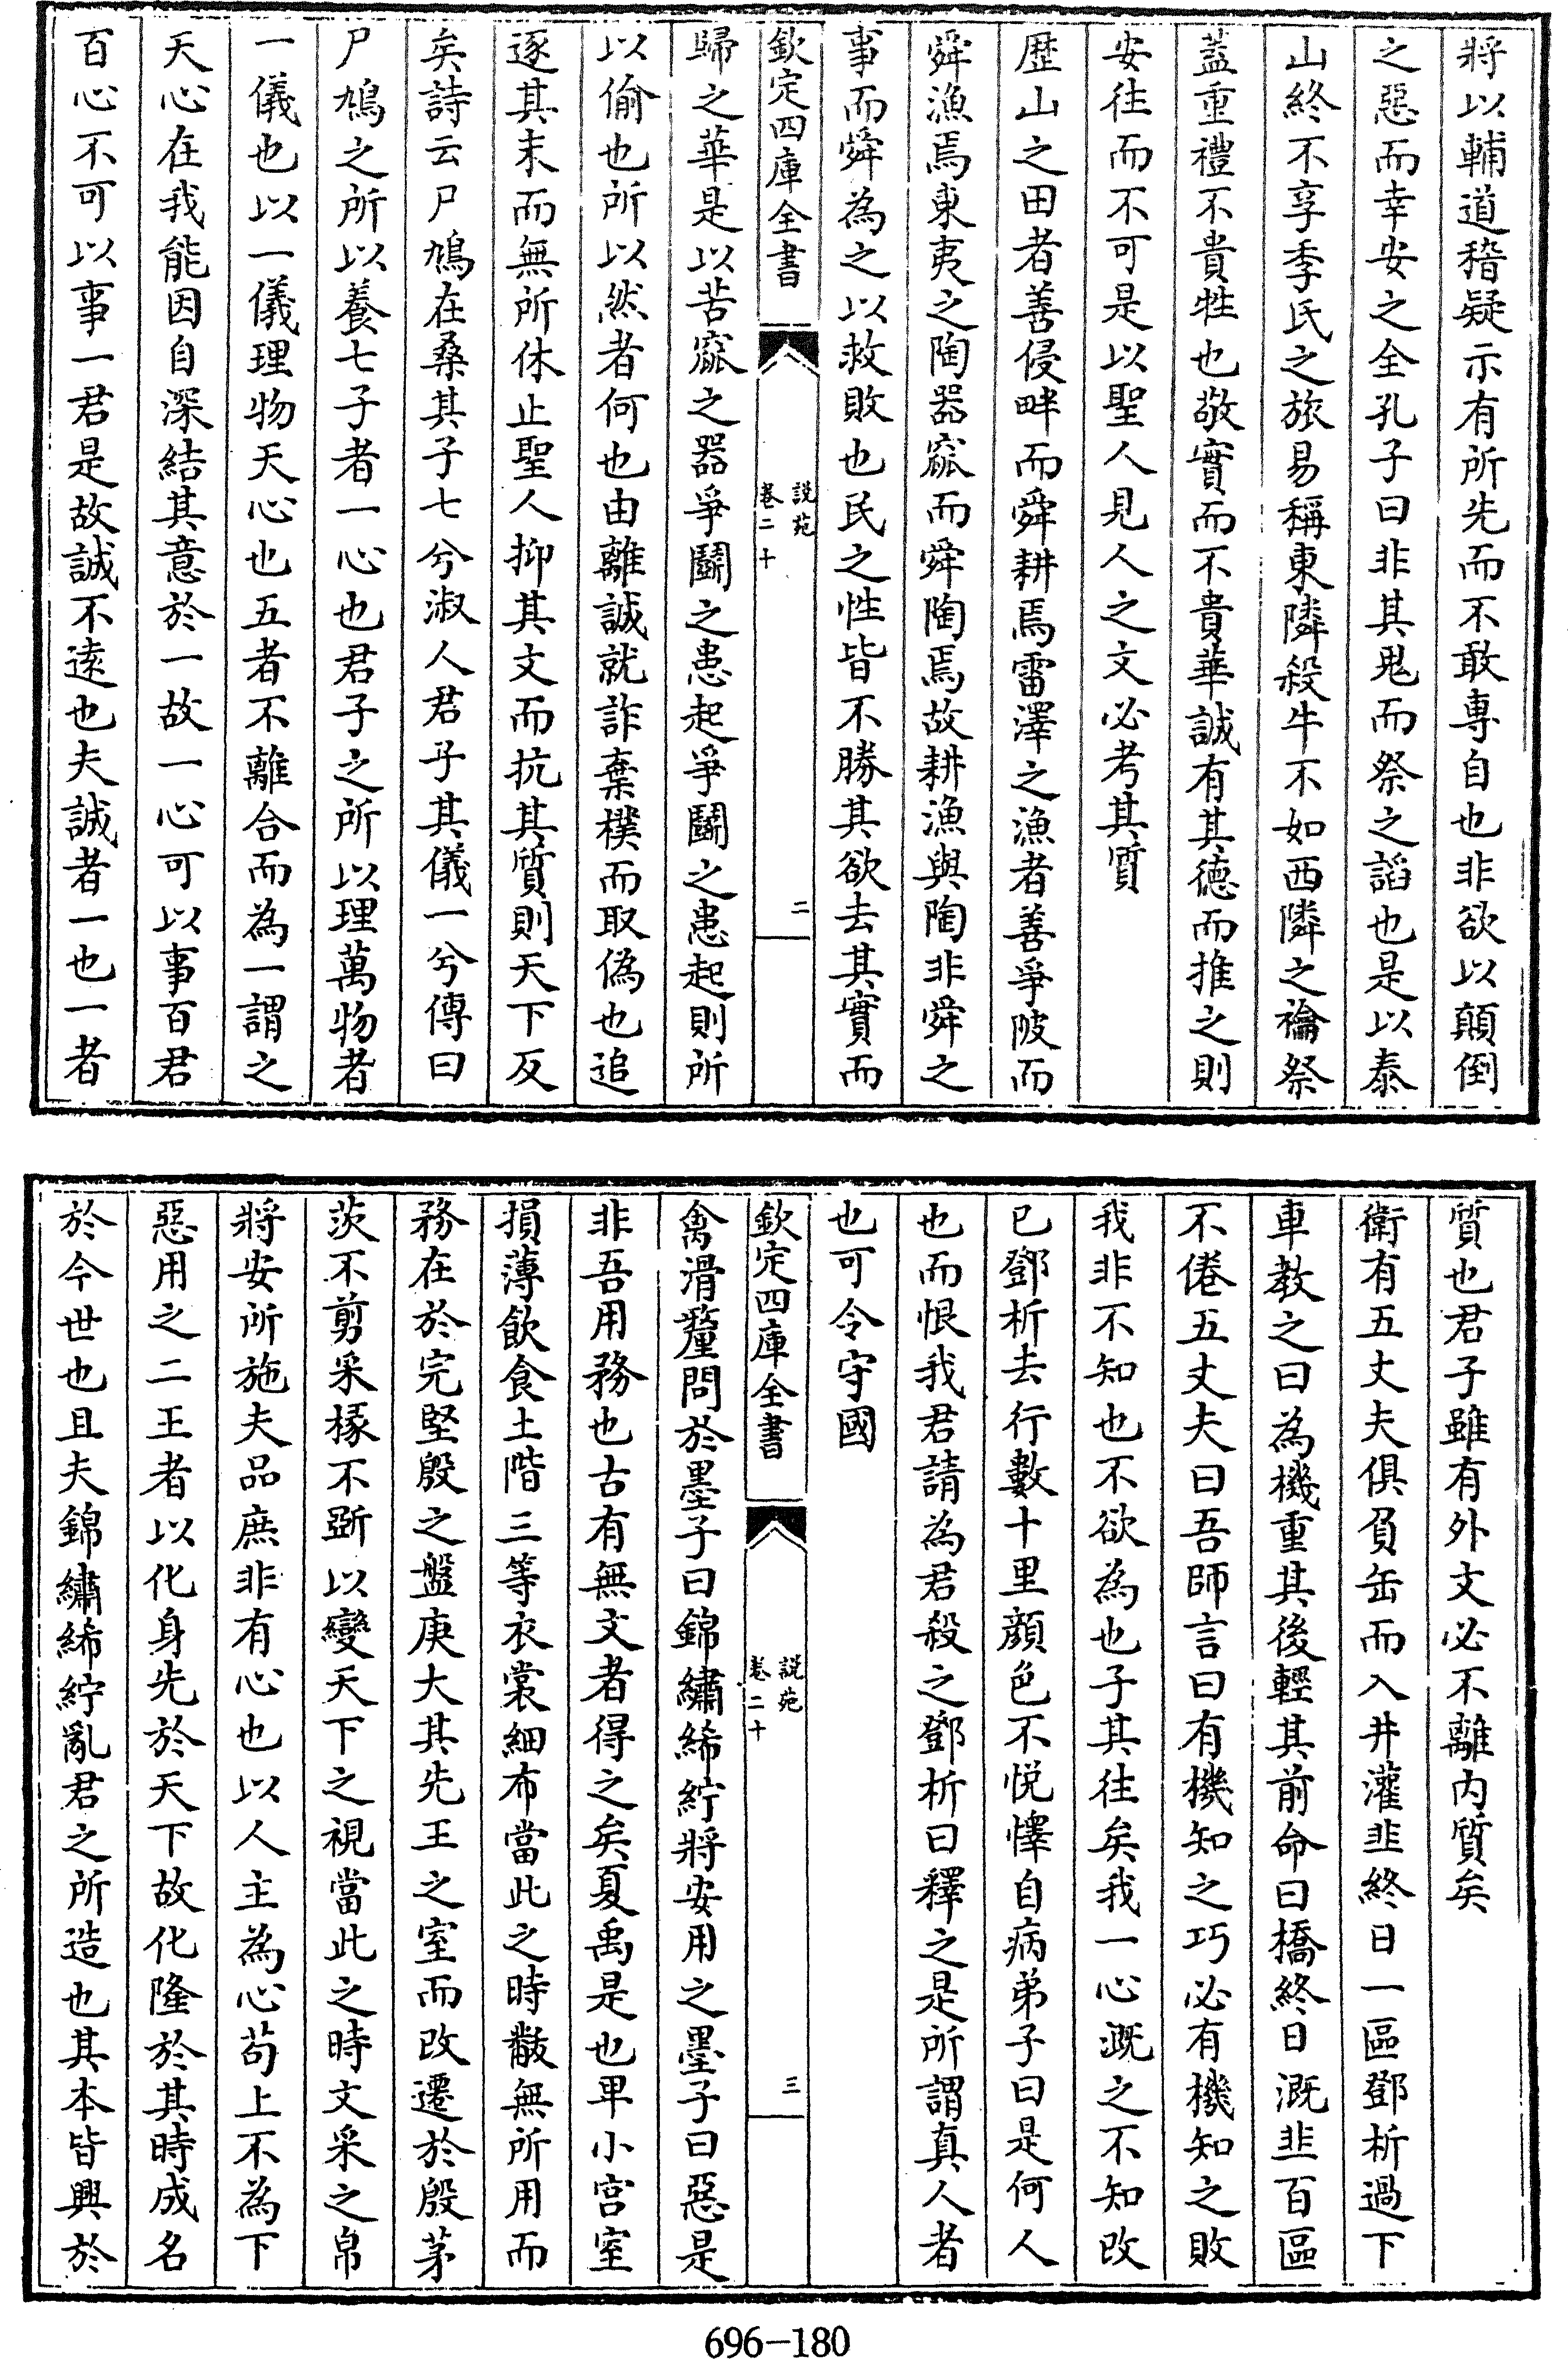 將以輔道稽疑示有所先而不敢專自也非欲以顛倒
之惡而幸安之全孔子曰非其鬼而祭之諂也是以泰
山終不享季氏之旅易稱東隣殺牛不如西隣之禴祭
蓋重禮不貴牲也敬實而不貴華誠有其德而推之則
安往而不可是以聖人見人之文必考其質
歴山之田者善侵畔而舜耕焉雷澤之漁者善爭陂而
舜漁焉東夷之陶器窳而舜陶焉故耕漁與陶非舜之
事而舜為之以救敗也民之性皆不勝其欲去其實而
欽定四庫全書
説苑
卷二十
二
歸之華是以苦窳之器爭鬭之患起爭鬭之患起則所
以偷也所以然者何也由離誠就詐棄樸而取偽也追
逐其末而無所休止聖人抑其文而抗其質則天下反
矣詩云尸鳩在桑其子七兮淑人君子其儀一兮傳曰
尸鳩之所以養七子者一心也君子之所以理萬物者
一儀也以一儀理物天心也五者不離合而為一謂之
天心在我能因自深結其意於一故一心可以事百君
百心不可以事一君是故誠不遠也夫誠者一也一者
質也君子雖有外文必不離内質矣
衛有五丈夫俱負缶而入井灌韭終日一區鄧析過下
車教之曰為機重其後輕其前命曰橋終日溉韭百區
不倦五丈夫曰吾師言曰有機知之巧必有機知之敗
我非不知也不欲為也子其往矣我一心溉之不知改
已鄧析去行數十里顔色不悦懌自病弟子曰是何人
也而恨我君請為君殺之鄧析曰釋之是所謂真人者
也可令守國
欽定四庫全書
説苑
卷二十
三
禽滑釐問於墨子曰錦繡絺紵將安用之墨子曰惡是
非吾用務也古有無文者得之矣夏禹是也卑小宫室
損薄飲食土階三等衣裳細布當此之時黻無所用而
務在於完堅殷之盤庚大其先王之室而改遷於殷茅
茨不剪采椽不斵以變天下之視當此之時文采之帛
將安所施夫品庶非有心也以人主為心苟上不為下
惡用之二王者以化身先於天下故化隆於其時成名
於今世也且夫錦繡絺紵亂君之所造也其本皆興於
696-180